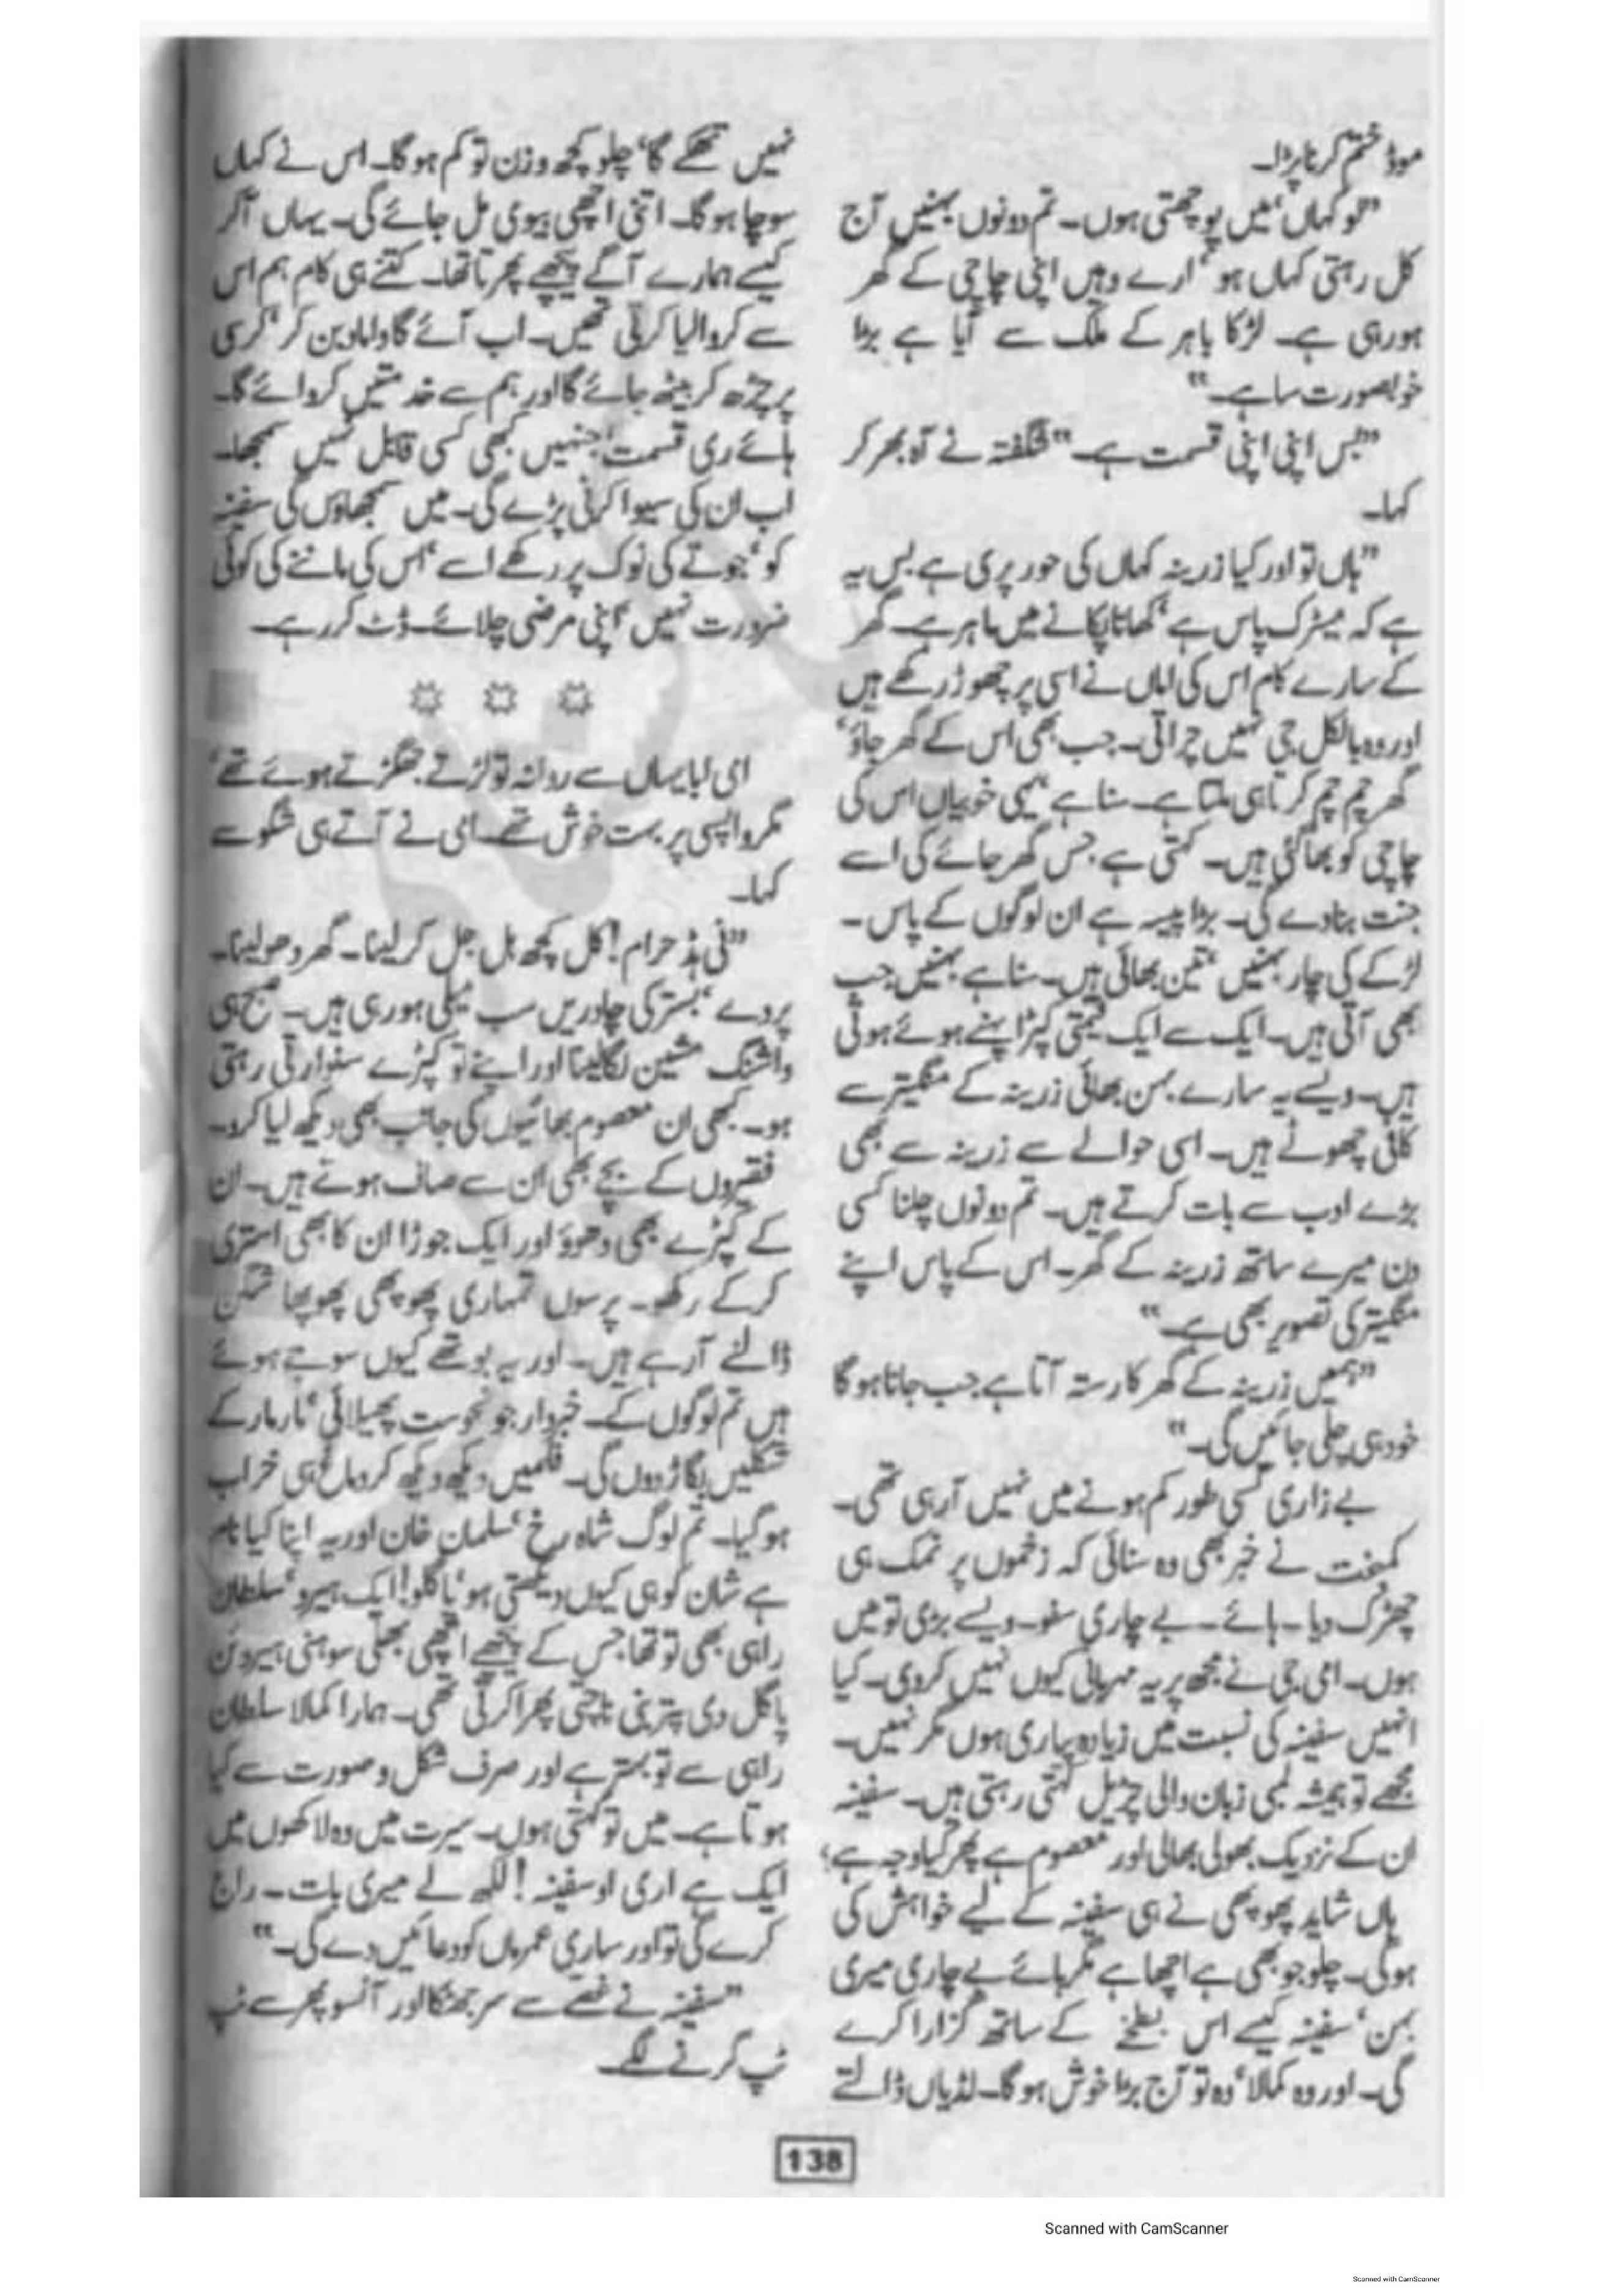 موڈ ختم کرنا پڑا۔
”لو کہاں‘ میں پوچھتی ہوں۔ تم دونوں بہنیں آج
کل رہتی کہاں ہو‘ ارے وہیں اپنی چاچی کے گھر
ہو رہی ہے۔ لڑکا باہر کے ملک سے آیا ہے بڑا
خوبصورت سا ہے۔“
”بس اپنی اپنی قسمت ہے۔“ شگفتہ نے آہ بھر کر
کہا۔
”ہاں تو اور کیا زرینہ کہاں کی حور پری ہے بس یہ
ہے کہ میٹرک پاس ہے‘ کھانا پکانے میں ماہر ہے۔ گھر
کے سارے کام اس کی اماں نے اسی پر چھوڑ رکھے ہیں
اور وہ بالکل جی نہیں چراتی۔ جب بھی اس کے گھر جاؤ‘
گھر چم چم کرتا ہی ملتا ہے۔ سنا ہے یہی خوبیاں اس کی
چاچی کو بھا گئی ہیں۔ کہتی ہے جس گھر جائے گی اسے
جنت بنا دے گی۔ بڑا پیسہ ہے ان لوگوں کے پاس۔
لڑکے کی چار بہنیں‘ تین بھائی ہیں۔ سنا ہے بہنیں جب
بھی آتی ہیں۔ ایک سے ایک قیمتی کپڑا پہنے ہوئے ہوتی
ہیں۔ ویسے یہ سارے بہن بھائی زرینہ کے منگیتر سے
کافی چھوٹے ہیں۔ اسی حوالے سے زرینہ سے بھی
بڑے ادب سے بات کرتے ہیں۔ تم دونوں چلنا کسی
دن میرے ساتھ زرینہ کے گھر۔ اس کے پاس اپنے
منگیتر کی تصویر بھی ہے۔“
”ہمیں زرینہ کے گھر کا رستہ آتا ہے جب جانا ہو گا
خود ہی چلی جائیں گی۔“
بے زاری کسی طور کم ہونے میں نہیں آ رہی تھی۔
کمبخت نے خبر بھی وہ سنائی کہ زخموں پر نمک ہی
چھڑک دیا۔ ہائے۔ بے چاری سفو۔ ویسے بڑی تو میں
ہوں۔ امی جی نے مجھ پر یہ مہربانی کیوں نہیں کر دی۔ کیا
انہیں سفینہ کی نسبت میں زیادہ پیاری ہوں مگر نہیں۔
مجھے تو ہمیشہ لمبی زبان والی چڑیل کہتی رہتی ہیں۔ سفینہ
ان کے نزدیک بھولی بھالی اور معصوم ہے پھر کیا وجہ ہے؛
ہاں شاید پھوپھی نے ہی سفینہ کے لیے خواہش کی
ہو گی۔ چلو جو بھی ہے اچھا ہے مگر ہائے بے چاری میری
بہن‘ سفینہ کیسے اس بطخے کے ساتھ گزارا کرے
گی۔ اور وہ کمالا‘ وہ تو آج بڑا خوش ہو گا۔ لڈیاں ڈالتے
نہیں تھکے گا‘ چلو کچھ وزن تو کم ہو گا۔ اس نے کہاں
سوچا ہو گا۔ اتنی اچھی بیوی مل جائے گی۔ یہاں آ کر
کیسے ہمارے آگے پیچھے پھرتا تھا۔ کتنے ہی کام ہم اس
سے کروا لیا کرتی تھیں۔ اب آئے گا داماد بن کر‘ کرسی
پر چڑھ کر بیٹھ جائے گا اور ہم سے خدمتیں کروائے گا۔
ہائے ری قسمت! جنہیں کبھی کسی قابل نہیں سمجھا۔
اب ان کی سیوا کرنی پڑے گی۔ میں سمجھاؤں گی سفینہ
کو‘ جوتے کی نوک پر رکھے اسے‘ اس کی ماننے کی کوئی
ضرورت نہیں‘ اپنی مرضی چلائے۔ ڈٹ کر رہے۔
امی ابا یہاں سے روانہ تو لڑتے جھگڑتے ہوئے تھے‘
مگر واپسی پر بہت خوش تھے۔ امی نے آتے ہی شگو سے
کہا۔
”نی ہڈ حرام! کل کچھ ہل جل کر لینا۔ گھر دھو لینا۔
پردے‘ بستر کی چادریں سب میلی ہو رہی ہیں۔ صبح ہی
واشنگ مشین لگا لینا اور اپنے تو کپڑے سنوارتی رہتی
ہو۔ کبھی ان معصوم بھائیوں کی جانب بھی دیکھ لیا کرو۔
فقیروں کے بچے بھی ان سے صاف ہوتے ہیں۔ ان
کے کپڑے بھی دھوؤ اور ایک جوڑا ان کا بھی استری
کر کے رکھو۔ پرسوں تمہاری پھوپھی پھوپھا شگن
ڈالنے آ رہے ہیں۔ اور یہ بوتھے کیوں سوجے ہوئے
ہیں تم لوگوں کے۔ خبردار جو نحوست پھیلائی‘ مار مار کے
شکلیں بگاڑ دوں گی۔ فلمیں دیکھ دیکھ کر دماغ ہی خراب
ہو گیا۔ تم لوگ شاہ رخ‘ سلمان خان اور یہ اپنا کیا نام
ہے شان کو ہی کیوں دیکھتی ہو‘ پاگلو! ایک ہیرو‘ سلطان
راہی بھی تو تھا جس کے پیچھے اچھی بھلی سوہنی ہیروئن
پاگل دی پترنی ناچتی پھرا کرتی تھی۔ ہمارا کمالا سلطان
راہی سے تو بہتر ہے اور صرف شکل و صورت سے کیا
ہوتا ہے۔ میں تو کہتی ہوں۔ سیرت میں وہ لاکھوں میں
ایک ہے اری او سفینہ! لکھ لے میری بات۔ راج
کرے گی تو اور ساری عمر ماں کو دعائیں دے گی۔“
”سفینہ نے غصے سے سر جھٹکا اور آنسو پھر سے ٹپ
ٹپ کرنے لگے۔
138
Scanned with CamScanner
Scanned with CamScanner